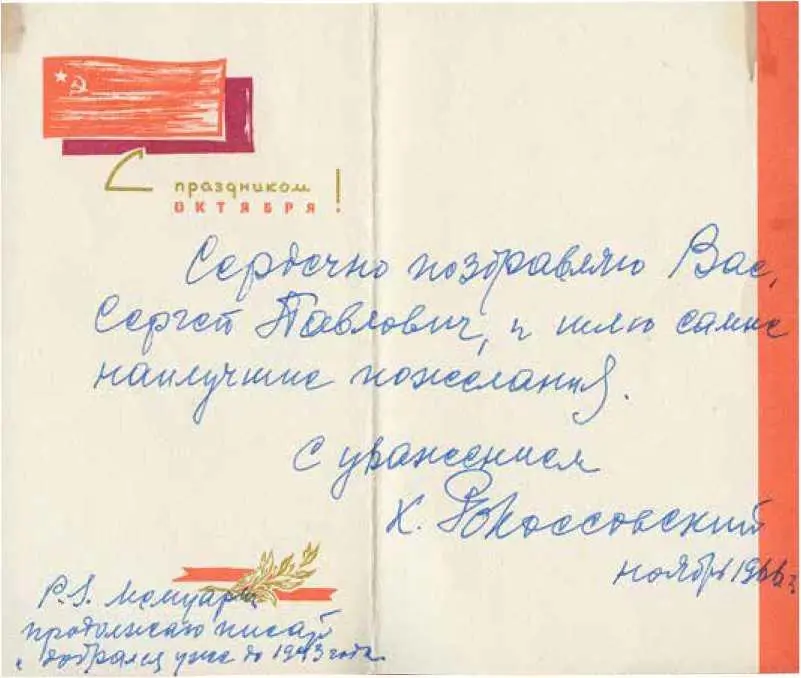 С праздником
ОКТЯБРЯ!
Сердечно поздравляю Вас,
Сергей Павлович, и шлю самые
наилучшие пожелания.
С уважением
К. Рокоссовский
ноябрь 1966 г.
P.S. Мемуары
продолжаю писать
и добрался уже до 1943 года.